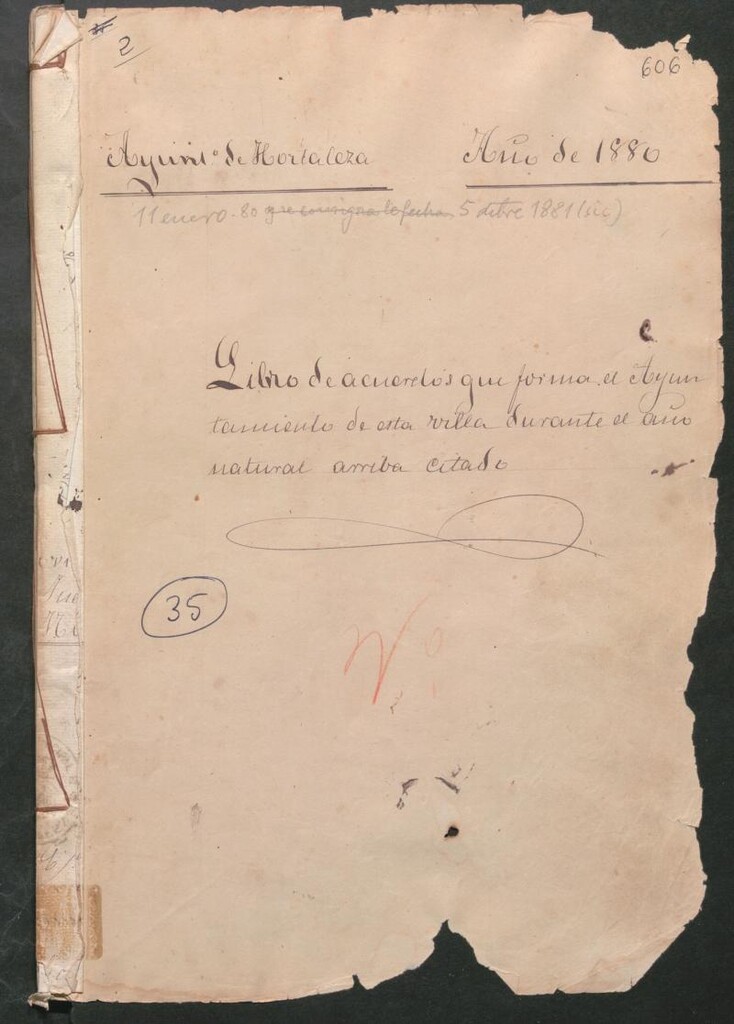 2
606
Ayunt.º de Hortaleza Año de 1880
11 enero-80 que consigna la fecha 5 dcbre 1881 (sic)
Libro de acuerdos que forma el Ayun
tamiento de esta villa durante el año
natural arriba citado
35
Nº